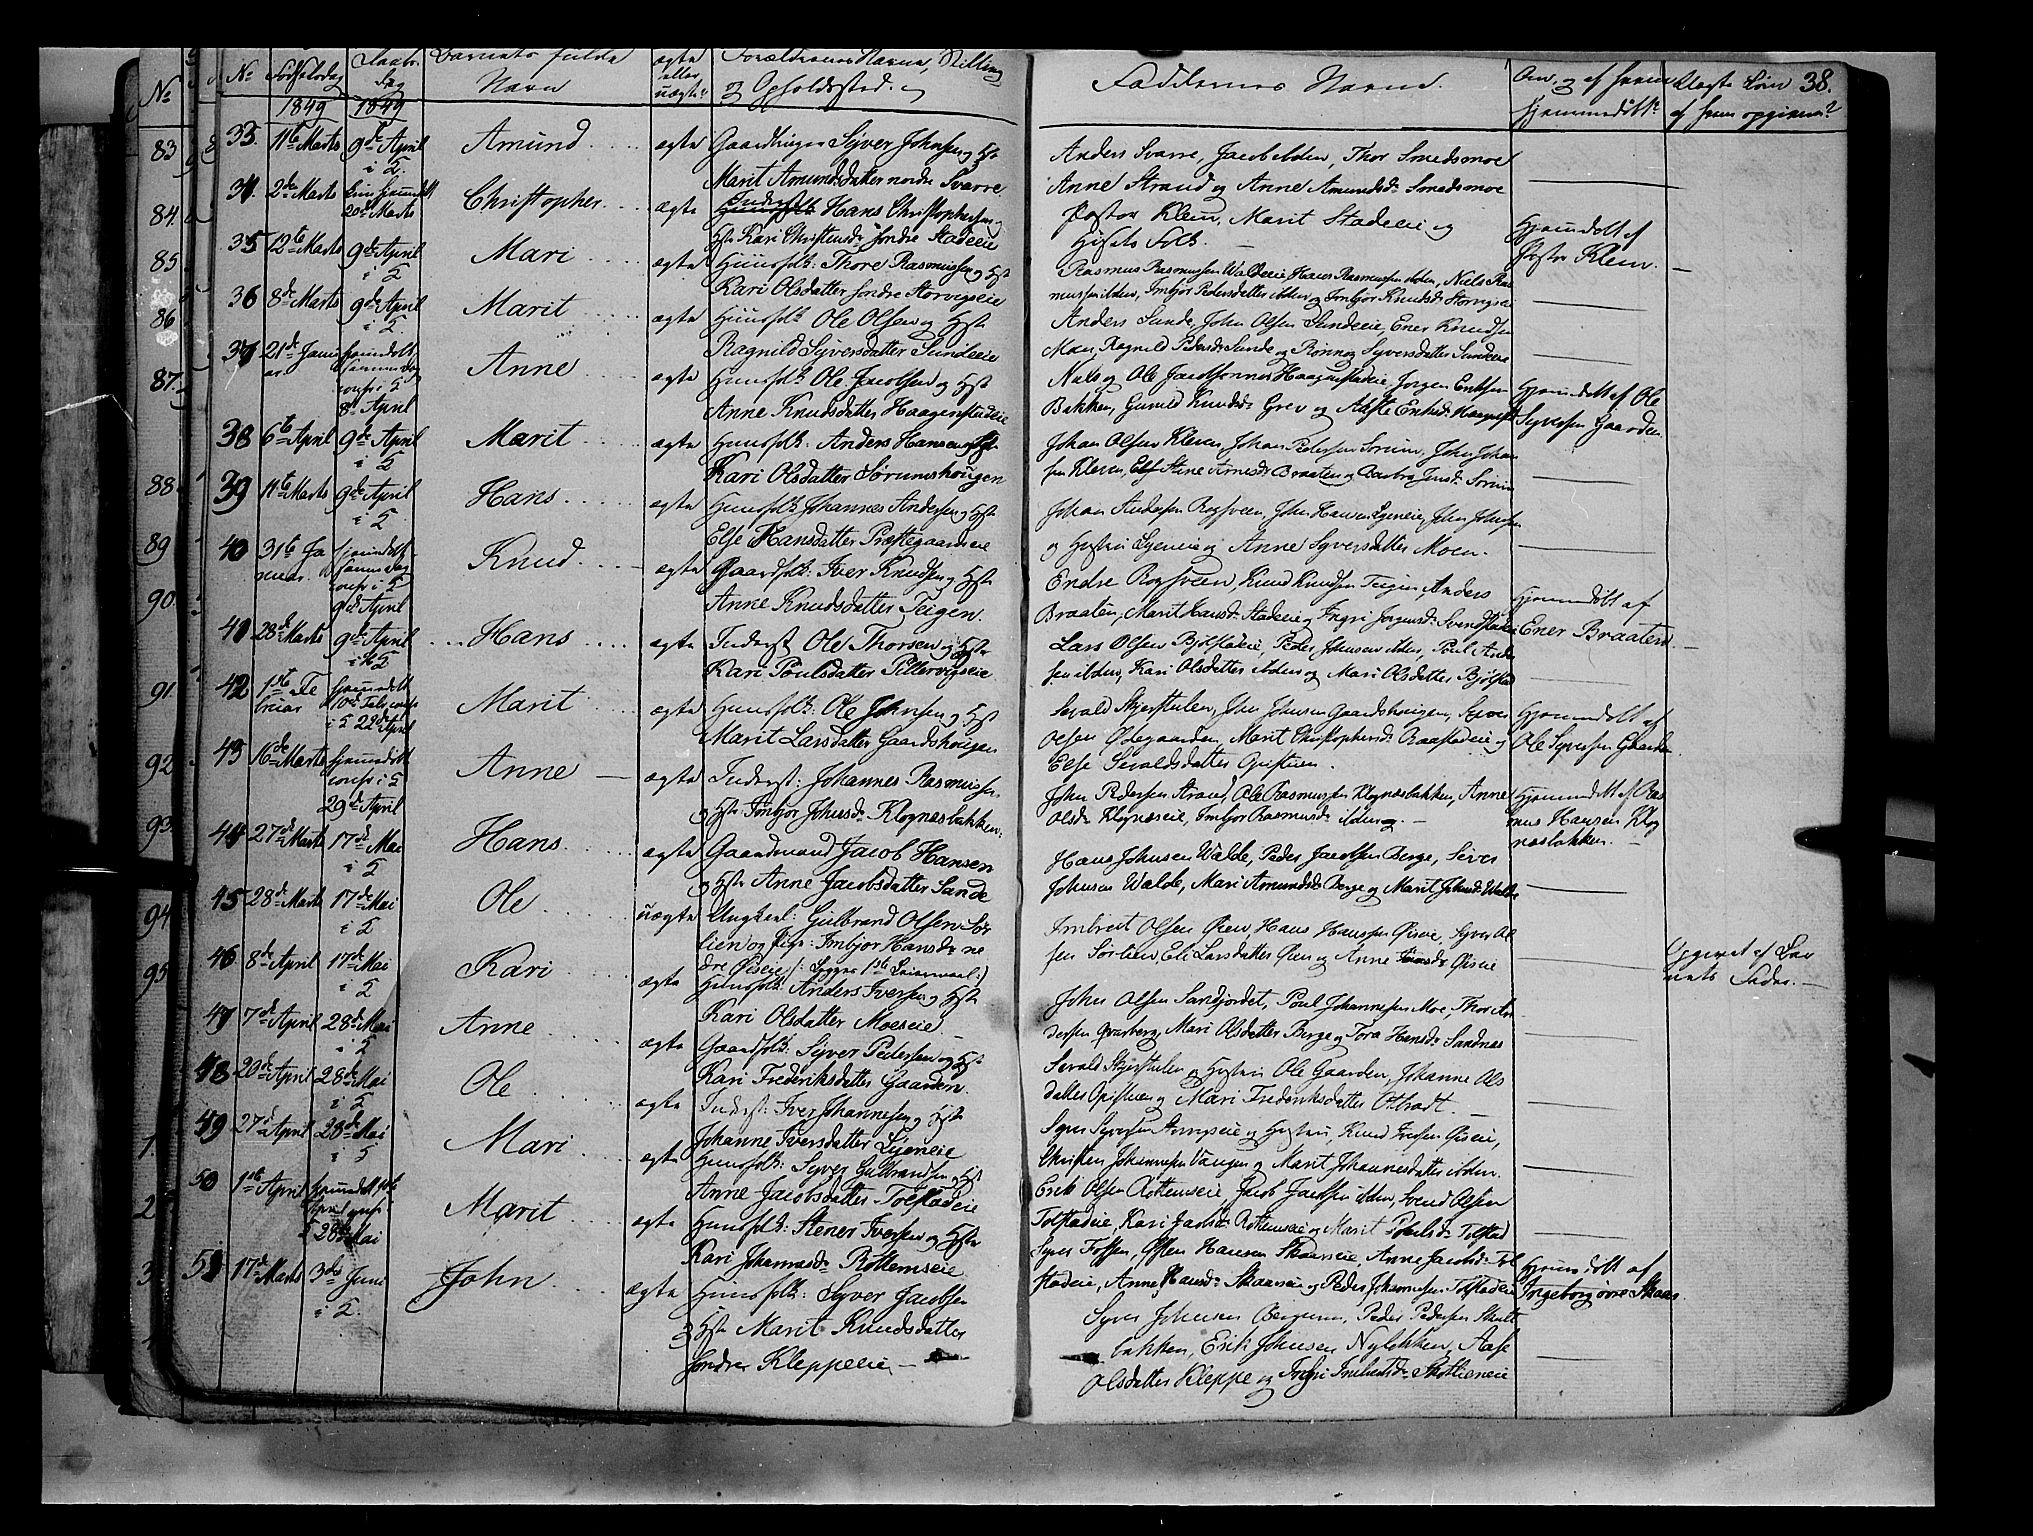 No Fødselsdag Daabs Dag Barnets fulde Navn ægte eller uægte? Forældrenes Navne, Stilling og Opholdssted.
Faddernes Navne. 38.
1849 1849
33. 11te Marts 9de April i K. Amund ægte Gaardbruger Syver Johnsen og Hst
Marit Amundsdatter nordre Svarre
Anders Svarre, Jacob ibden, Thor Smedsmoe
Anne Strand og Anne Amundsdr Smedsmoe
34. 2de Marts 20de Marts Christopher ægte Inderst Hans Christophersen og
Hst Kari Christensdr Søndre Stadeeie
Pastor Klem, Marit Stadeeie og
Husets Folk.
Hjemmedøbt af
Pastor Klem.
35 12te Marts 9de April i K. Mari ægte Huusfolk: Thore Rasmussen og Hst
Kari Olsdatter Søndre Storvigseie
Rasmus Rasmussen Waldeeie, Hans Rasmussen ibden, Niels Ras
mussen ibden, Imbjør Pedersdatter ibden og Imbjør Knudsdr Storvigseie
36 8de Marts 9de April i K. Marit ægte Huusfolk: Ole Olsen og Hst
Ragnild Syversdatter Sundeeie
Anders Sunde, John Olsen Sundeeie, Ener Knudsen
Moen, Ragnild Pedersdr Sunde og Rønnog Syversdatter Sundeeie
37 21de Januar 8de April Anne ægte Huusfolk: Ole Jacobsen og Hst
Anne Knudsdatter Haagenstadeie
Niels og Ole Jacobsønner Haagenstadeie, Jørgen Eriksen
Bakken, Gunild Knudsdr Grev og
Hjemmedøbt af Ole
Syversen Gaarden.
38 6te April 9de April i K. Marit ægte Huusfolk: Anders Hansen og Hst
Kari Olsdatter Sørumshougen
Johan Olsen Kleven, Johan Pedersen Sørum, John Johan
sen Kleven, Else Arnesdr Braaten og Barbra Jensdr Sørum
39 11te Marts 9de April i K. Hans ægte Huusfolk: Johannes Andersen og Hst
Else Hansdatter Præstegaardseie
Johan Andersen Røgsveen, John Hansen Lyeneie, John Johnsen
og Hustru Lyeneie og Anne Syversdatter Moen.
40 31te Januar 9de April Knud ægte Gaardfolk: Iver Knudsen og Hst
Anne Knudsdatter Teigen.
Endre Røgsveen, Knud Knudsen Teigen, Anders
Braaten, Marit Hansdr Stadeeie og Ingri Jørgensdr
Hjemmedøbt af
Ener Braaten.
41 28de Marts 9de April i K. Hans ægte Inderst Ole Thorsen og Hst
Kari Poulsdatter Pillarvigseie
Lars Olsen Bjølstadeie, Peder Johnsen ibden, Poul Ander
sen ibden, Kari Olsdatter ibden og Mari Olsdatter Bjølstad
42 1ste Februar 22de April Marit ægte Huusfolk: Ole Johnsen og Hst
Marit Larsdatter Gaardshougen
Sevald Skjerstulen, John Johnsen Gaardshougen, Syver
Olsen Ødegaarden, Marit Christophersdr Raastadeie og
Else Sevaldsdatter
Hjemmedøbt af
Ole Syversen Gaarden
43 16de Marts 29de April Anne ægte Inderst: Johannes Rasmussen
og Hst Imbjør Johnsdr Klognæsbakken.
John Pedersen Strand, Ole Rasmussen Klognæsbakken, Anne
Olsdr Klognæseie, Imbjør Rasmusdr ibden og.
Hjemmedøbt af Ras
mus Hansen Klog
næsbakken.
44 27de Marts 17de Mai i K. Hans ægte Gaardmand Jacob Hansen
og Hst Anne Jacobsdatter Sande
Hans Johnsen Walde, Peder Jacobsen Berge, Siver
Johnsen Walde, Mari Amundsdr Berge og Marit Johnsdr Walde
45 28de Marts 17de Mai i K. Ole uægte Ungkarl: Gulbrand Olsen Sør
lien og Pige: Imbjør Hansdr ne
dre Øiseie /: begges 1ste Leiermaal :/
Imbret Olsen Øien, Hans Hansen Øiseie, Syver Ol
sen Sørlien, Eli Larsdatter Øien og Anne Øiseie
Opgivet af Bar
nets Fader.
46 8de April 17de Mai i K. Kari ægte Huusfolk: Anders Iversen og Hst
Kari Olsdatter Moeseie.
John Olsen Sandjordet, Poul Johannesen Moe, Thor An
dersen Qvarberg, Mari Olsdatter Berge og Tora Hansdr Sandnæs
47 7de April 28de Mai i K. Anne ægte Gaardfolk: Syver Pedersen og Hst
Kari Frederiksdatter Gaarden.
Sevald Skjerstulen og Hustru, Ole Gaarden, Johanne Ols
datter og Mari Frederiksdatter
48 20de April 28de Mai i K. Ole ægte Inderst: Iver Johannesen og Hst
Johanne Iversdatter Lyeneie
Syver Syversen og Hustru, Knud Iversen Øiseie,
Christen Johannesen Vangen og Marit Johannesdatter ibden.
49 27de April 28de Mai i K. Mari ægte Huusfolk: Syver Gulbrandsen og Hst
Anne Jacobsdatter Tolstadeie
Erik Olsen Rottemseie, Jacob Jacobsen ibden, Svend Olsen
Tolstadeie, Kari Jacobsdr Rottemseie og Marit Poulsdr Tolstad
50 1ste April 28de Mai Marit ægte Huusfolk: Stener Iversen og Hst
Kari Johannesdr Rottemseie
Syver Fossen, Hansen Skaarseie, Anne Jacobsdr Tol
stadeie, Anne Hansdr Skaarseie og Peder Johannesen Tolstadeie
Hjemmedøbt af
Ingeborg øvre Skaar.
51 17de Marts 3de Juni i K. John ægte Huusfolk: Syver Jacobsen
og Hst Marit Knudsdatter
Søndre Kleppeeie
Syver Johnsen Bergum, Peder Pedersen
bakken, Erik Johnsen Nyløkken, Aase
Olsdatter Kleppe og
No 83 84 85 86 87 88 89 90 91 92 93 94 95 1 2 3